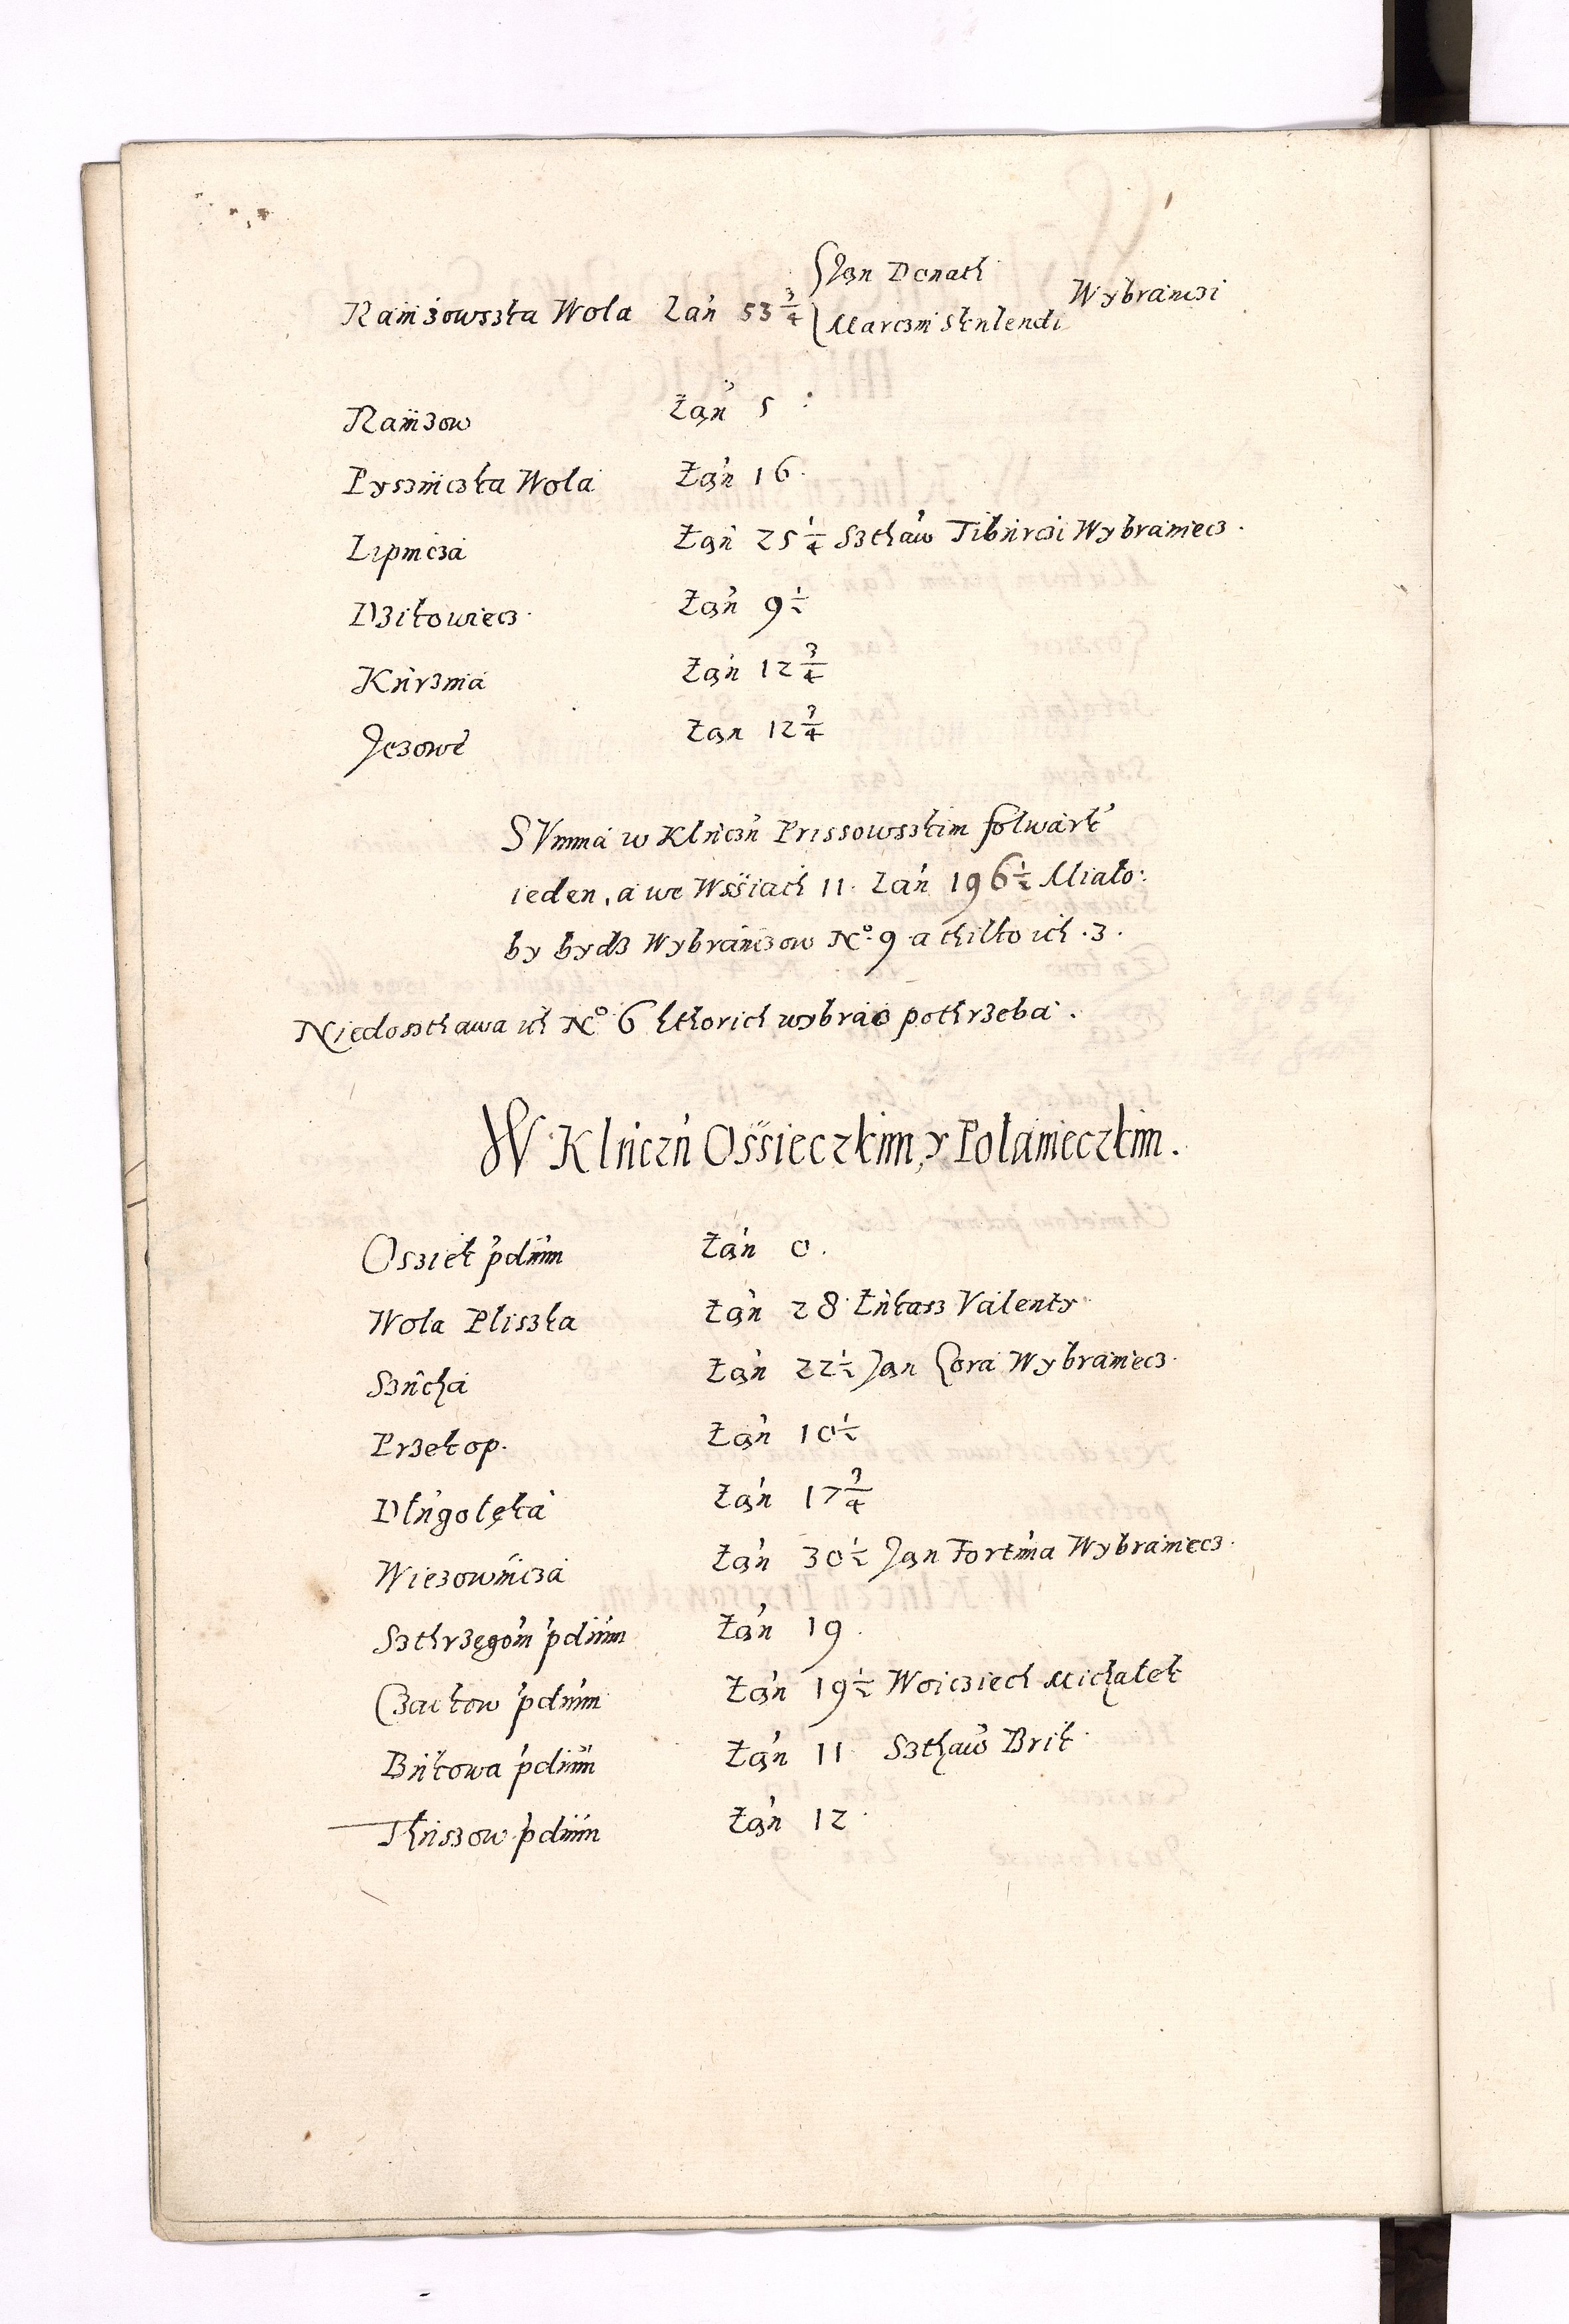 Ranizowszka Wola Łan 53 3/4 { Jan Donath
Marczin Skulendi Wybranczi
Ranizow Łan 5 :
Pyszniczka Wola Łan 16.
Lipnicza Łan 25 1/4 Szthaw Tiburczi Wybraniecz.
Dzikowiecz. Łan 9 1/2
Kurznia Łan 12 3/4
Jezowe Łan 12 3/4
SVmma w Kluczu Prissowszkim folwark
ieden, a we Wssiach 11. Łan 196 1/2 Miało:
by bydz Wybranczow No. 9 a thilko ich .3.
Niedoszthawa ich No 6 kthorich wybrac pothrzeba.
W Kluczu Ossieczkim, y Polanieczkim.
Osziek pdium Łan 0.
Wola Pliszka Łan 28 Łukasz Valenty
Szucha Łan 22 1/2 Jan Gora Wybraniecz.
Przekop. Łan 10 1/2
Dlugolęka Łan 17 3/4
Wiezownicza Łan 30 1/2 Jan Fortuna Wybraniecz.
Szthrzęgom pdium Łan 19.
Czaikow pdium Łan 19 1/2 Woicziech Michałek
Bukowa pdium Łan 11 Szthaw Brik
Thuszow pdium Łan 12